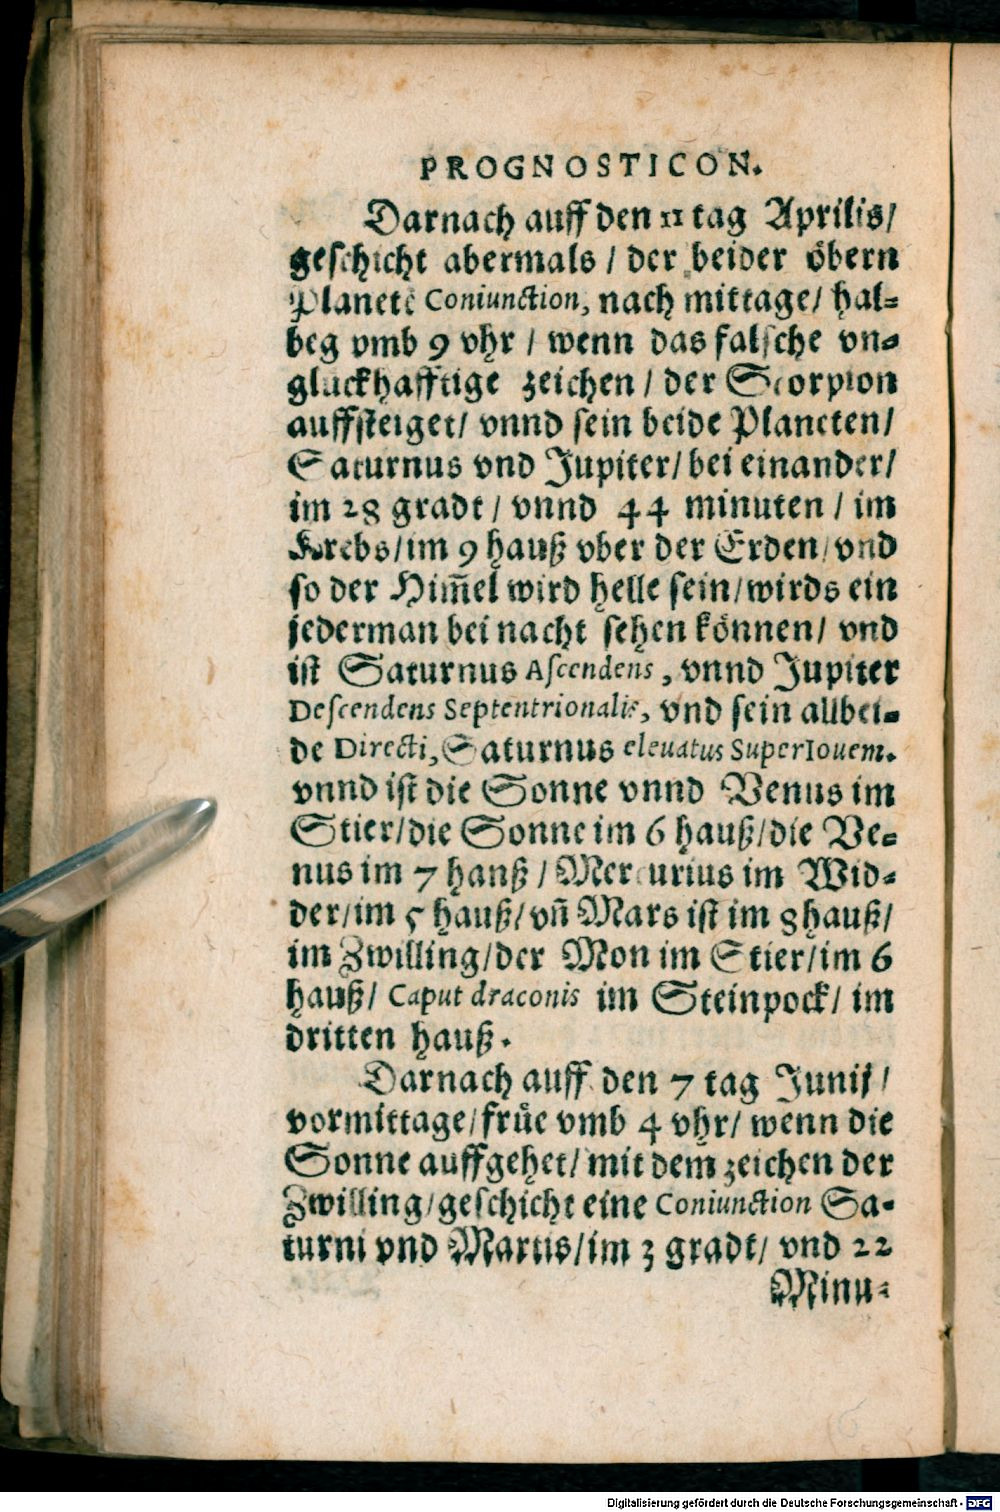 PROGNOSTICON.
Darnach auff den 11 tag Aprilis/
geschicht abermals / der beider öbern
Planetē Coniunction, nach mittage/ hal=
beg vmb 9 vhr / wenn das falsche vn=
gluckhafftige zeichen / der Scorpion
auffsteiget/ vnnd sein beide Planeten/
Saturnus vnd Jupiter/ bei einander/
im 28 gradt / vnnd 44 minuten / im
Krebs/im 9 hauß vber der Erden/vnd
so der Him̄el wird helle sein/wirds ein
jederman bei nacht sehen können/ vnd
ist Saturnus Ascendens, vnnd Jupiter
Descendens Septentrionalis, vnd sein allbei=
de Directi, Saturnus eleuatus Super Iouem.
vnnd ist die Sonne vnnd Venus im
Stier/die Sonne im 6 hauß/die Ve=
nus im 7 hanß / Mercurius im Wid=
der/im 5 hauß/vn̄ Mars ist im 8 hauß/
im Zwilling/der Mon im Stier/im 6
hauß/ Caput draconis im Steinpock/ im
dritten hauß.
Darnach auff den 7 tag Junij /
vormittage/früe vmb 4 vhr/ wenn die
Sonne auffgehet/mit dem zeichen der
Zwilling/geschicht eine Coniunction Sa=
turni vnd Martis/im 3 gradt/ vnd 22
Minu=
Digitalisierung gefördert durch die Deutsche Forschungsgemeinschaft - DFG